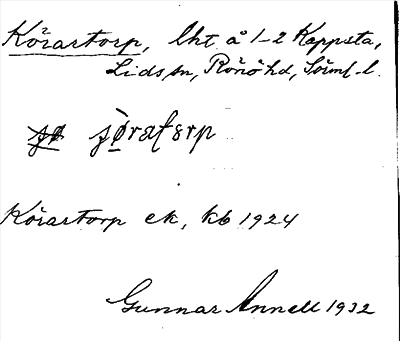 Körartorp, lht å 1-2 Kappsta,
Lids sn, Rönö hd, Söml. l.
Körartorp ek, kb 1924
Gunnar Annell 1932